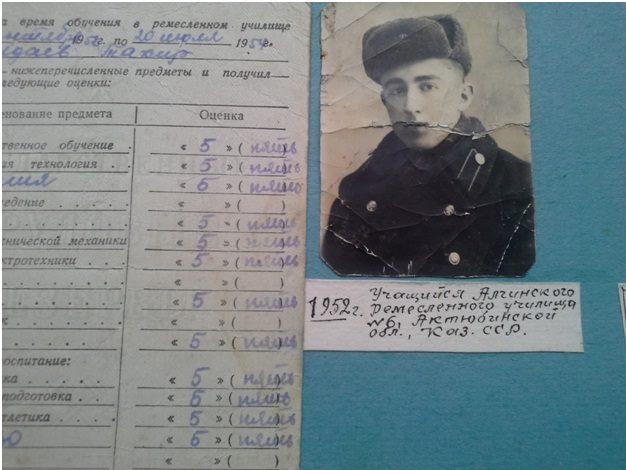 а время обучения в ремесленном училище
1952 г. по 20 июля 1954 г.
Тахир
— нижеперечисленные предметы и получил
следующие оценки:
менование предмета Оценка
ственное обучение . « 5 » ( пять
ая технология . . . « 5 » ( пять
« 5 » ( пять
ведение . . . . . « » ( )
. . . . . . « 5 » ( пять
хнической механики « 5 » ( пять
ектротехники . . . « 5 » ( пять
. . . . . . « » ( )
. . . . . . « 5 » ( пять
к . . . . . « » ( )
. . . . . . « 5 » ( пять
воспитание:
ка . . . . . « 5 » ( пять
подготовка . . . « 5 » ( пять
тлетика . . . . « 5 » ( пять
« 5 » ( пять
« » ( )
1952 г. Учащийся Алгинского
ремесленного училища
№6, Актюбинской
обл., Каз. ССР.